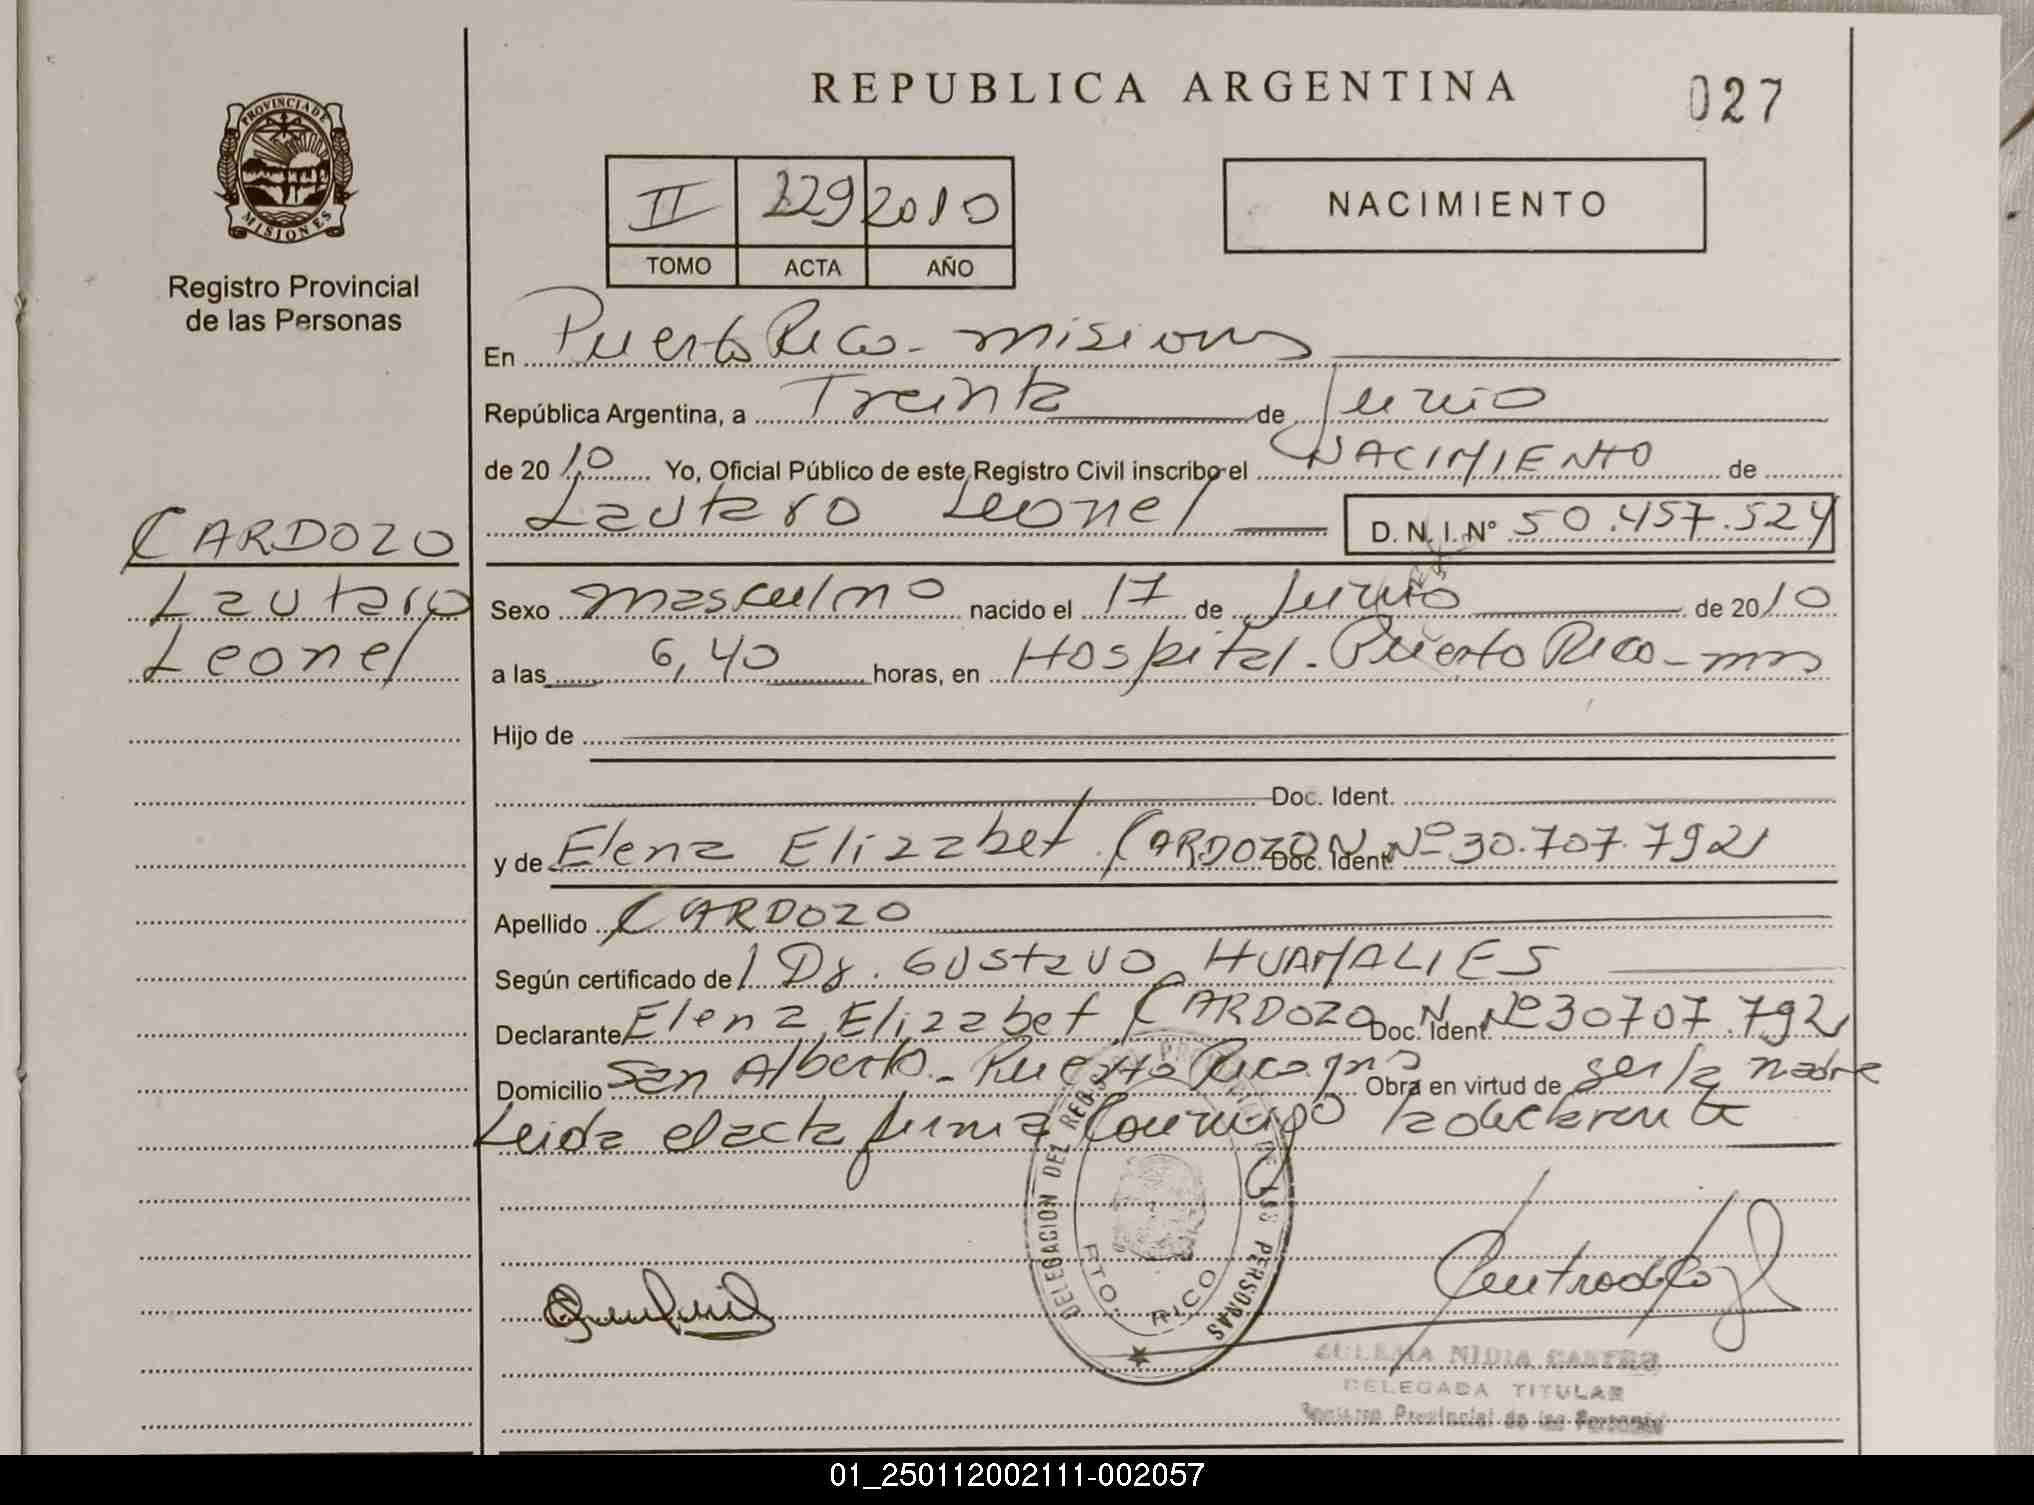 REPUBLICA ARGENTINA
027
PROVINCIA DE
MISIONES
Registro Provincial
de las Personas
II 229 2010
TOMO ACTA AÑO
NACIMIENTO
En Puerto Rico - misiones
República Argentina, a Treinta de Junio
de 2010 Yo, Oficial Público de este Registro Civil inscribo el NACIMIENTO de
Lautaro Leonel D. N. I. N° 50.457.524
CARDOZO
Lautaro
Leonel
Sexo masculino nacido el 17 de Junio de 2010
a las 6,40 horas, en Hospital - Puerto Rico - mns
Hijo de
Doc. Ident.
y de Elena Elizabet CARDOZO Doc. Ident. N Nº 30.707.792
Apellido CARDOZO
Según certificado del Dr. Gustavo HUAMALIES
Declarante Elena Elizabet CARDOZO Doc. Ident. N Nº 30707.792
Domicilio San Alberto - Puerto Rico mns Obra en virtud de ser la madre
Leida el acta firma conmigo la declarante
DELEGACION DEL REGISTRO PROVINCIAL DE LAS PERSONAS
PTO. RICO
ZULEMA NIDIA CASTRO
DELEGADA TITULAR
Registro Provincial de las Personas
01_250112002111-002057